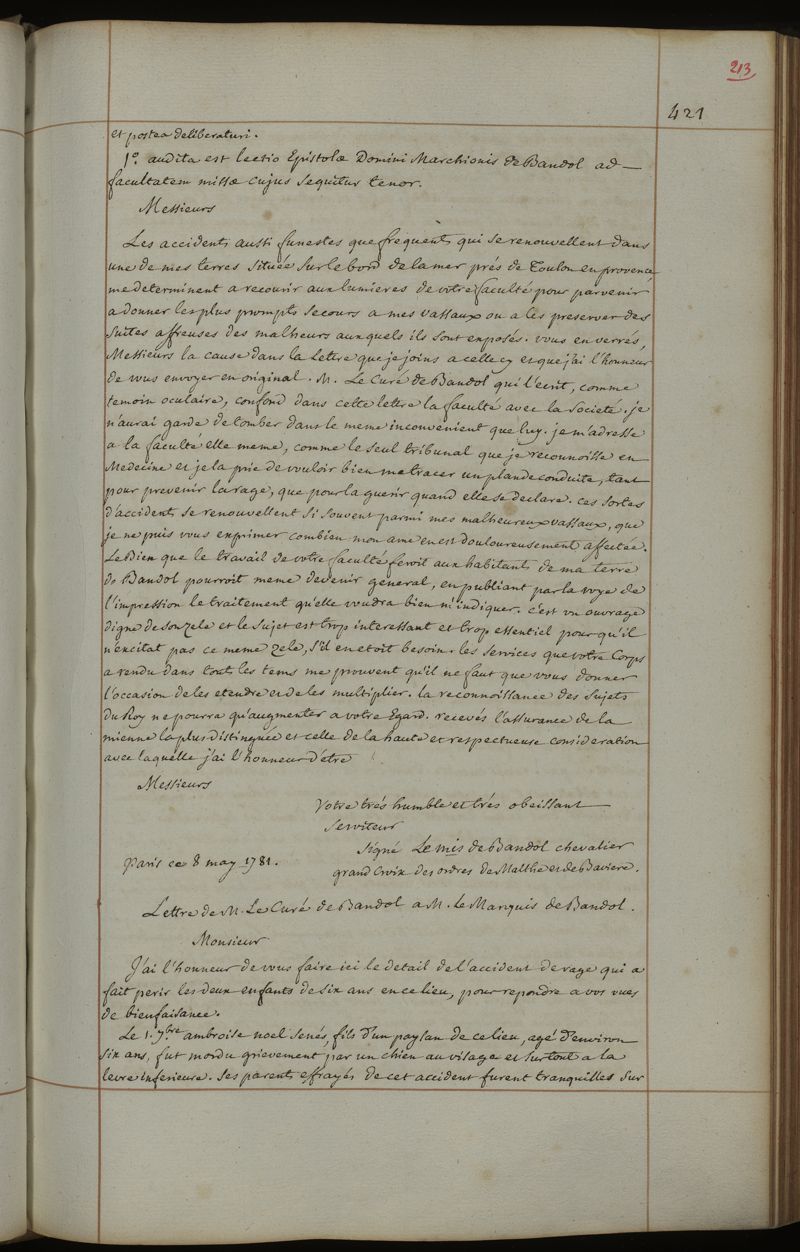 213
421
et postea deliberaturi.
1.º audita est lectio Epistolæ Domini Marchionis de Bandol ad
facultatem missæ cujus sequitur tenor.
Messieurs
Les accidents aussi funestes que frequents qui se renouvellent dans
une de mes terres située sur le bord de la mer prés de Toulon en provence,
me determinent a recourir aux lumieres de votre faculté pour parvenir
a donner les plus prompts secours a mes vassaux ou a les preserver des
suites affreuses des malheurs auxquels ils sont exposés. vous en verrés,
Messieurs la cause dans la Lettre que je joins a celle cy et que j'ai l'honneur
de vous envoyer en original. M. Le Curé de Bandol qui l'ecrit, comme
temoin oculaire, confond dans cette lettre la faculté avec la Societé. je
n'aurai garde de tomber dans le meme inconvenient que luy. je m'adresse
a la faculté elle meme, comme le seul tribunal que je reconnoisse en
Medecine et je la prie de vouloir bien me tracer un plan de conduite, tant
pour prevenir la rage, que pour la guerir quand elle se declare. ces sortes
d'accidents se renouvellent si souvent parmi mes malheureux vassaux, que
je ne puis vous exprimer combien mon ame en est douloureusement affectée.
Le Bien que le travail de votre faculté feroit aux habitants de ma terre
de Bandol pourroit meme devenir general, en publiant par la voye de
l'impression le traitement qu'elle voudra bien m'indiquer. c'est un ouvrage
digne de son zele et le sujet est trop interessant et trop essentiel pour qu'il
n'excitat pas ce meme zele, s'il en etoit besoin. les services que votre Corps
a rendu dans tout les tems me prouvent qu'il ne faut que vous donner
l'occasion de les etendre et de les multiplier. la reconnoissance des Sujets
du Roy ne pourra qu'augmenter a votre Egard. recevés l'assurance de la
mienne la plus distinguée et celle de la haute et respectueuse consideration
avec laquelle j'ai l'honneur d'etre
Messieurs
Votre trés humble et trés obeissant
Serviteur
Signé Le mis de Bandol chevalier
Paris ce 8 may 1781. grand Croix des ordres de Malthe et de Baviere.
Lettre de M. Le Curé de Bandol a M. le Marquis de Bandol.
Monsieur
J'ai l'honneur de vous faire ici le detail de l'accident de rage qui a
fait perir les deux enfants de six ans en ce lieu, pour repondre a vos vues
de bienfaisance.
Le 1. 7bre ambroise noel Senés, fils d'un paysan de ce lieu, agé d'environ
six ans, fut mordu grievement par un chien au visage et surtout a la
levre inferieure. Ses parents effrayés de cet accident furent tranquilles sur